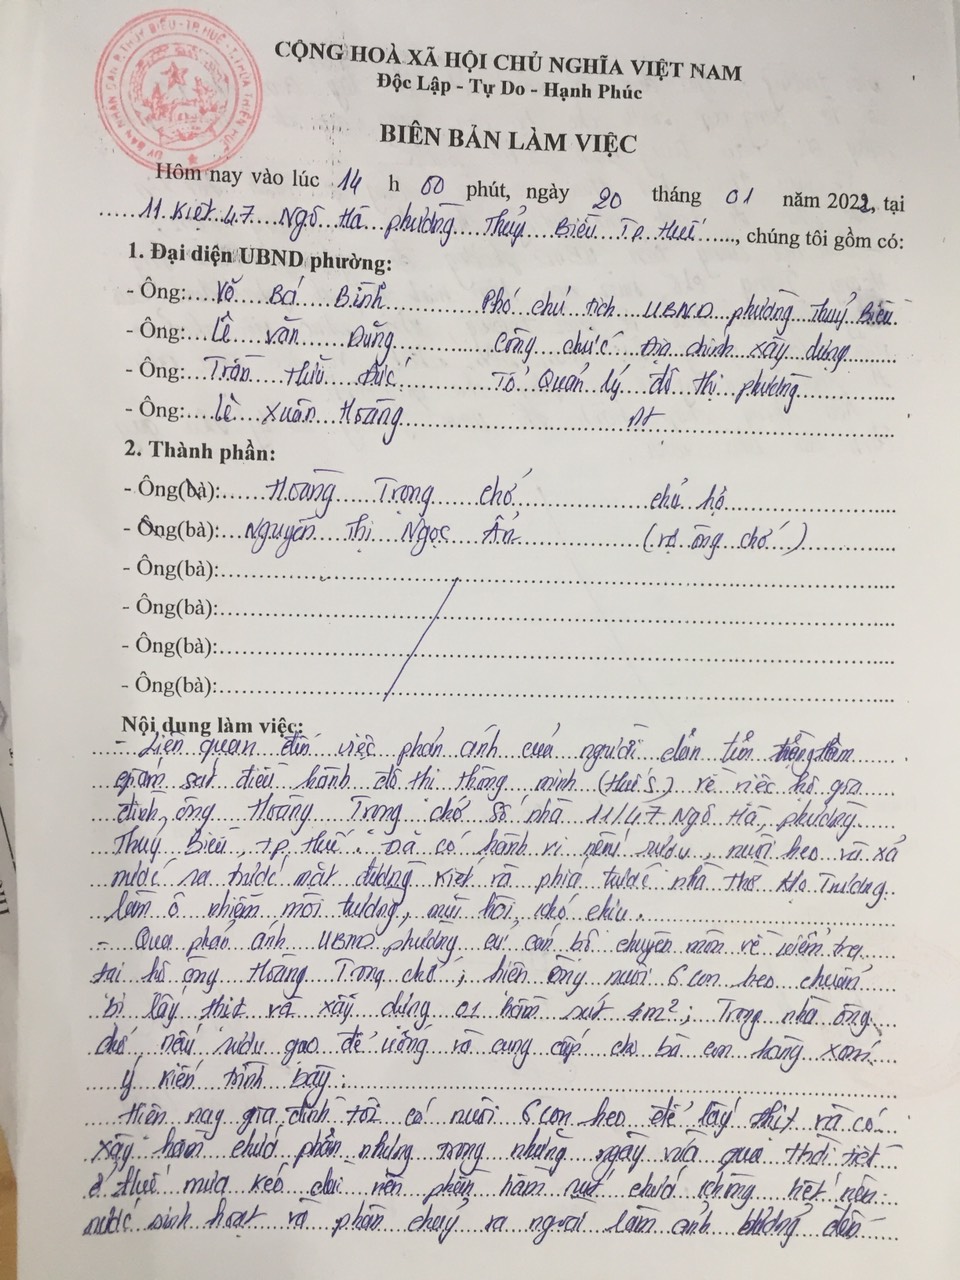 ỦY BAN NHÂN DÂN P. THỦY BIỀU - TP HUẾ - T. THỪA THIÊN HUẾ
CỘNG HOÀ XÃ HỘI CHỦ NGHĨA VIỆT NAM
Độc Lập - Tự Do - Hạnh Phúc
BIÊN BẢN LÀM VIỆC
Hôm nay vào lúc 14 h 00 phút, ngày 20 tháng 01 năm 2022, tại
11 Kiệt 47 Ngô Hà phường Thuỷ Biều Tp. Huế, chúng tôi gồm có:
1. Đại diện UBND phường:
- Ông: Võ Bá Bình Phó chủ tịch UBND phường Thuỷ Biều
- Ông: Lê Văn Dũng Công chức Địa chính xây dựng
- Ông: Trần Hữu Đức Tổ Quản lý đô thị phường
- Ông: Lê Xuân Hoàng nt
2. Thành phần:
- Ông(bà): Hoàng Trọng Chớ chủ hộ
- Ông(bà): Nguyễn Thị Ngọc Ẩn (vợ ông Chớ)
- Ông(bà):
- Ông(bà):
- Ông(bà):
- Ông(bà):
Nội dung làm việc:
- Liên quan đến việc phản ánh của người dân trên trung tâm
giám sát điều hành đô thị thông minh (Hue S) về việc hộ gia
đình ông Hoàng Trọng Chớ số nhà 11/47 Ngô Hà, phường
Thuỷ Biều, T.P Huế. Đã có hành vi nấu rượu, nuôi heo và xả
nước ra trước mặt đường Kiệt và phía trước nhà thờ Họ Trương
làm ô nhiễm môi trường, mùi hôi, khó chịu.
- Qua phản ánh UBND phường cử cán bộ chuyên môn về kiểm tra
tại hộ ông Hoàng Trọng Chớ; hiện ông nuôi 6 con heo chuẩn
bị lấy thịt và xây dựng 01 hầm rút 4m2; Trong nhà ông
Chớ nấu rượu gạo để uống và cung cấp cho bà con hàng xóm
ý kiến trình bày:
Hiện nay gia đình tôi có nuôi 6 con heo để lấy thịt và có
xây hầm chứa phân nhưng trong những ngày vừa qua thời tiết
ở Huế mưa kéo dài nên phần hầm rút chứa không hết nên
nước sinh hoạt và phân chảy ra ngoài làm ảnh hưởng đến